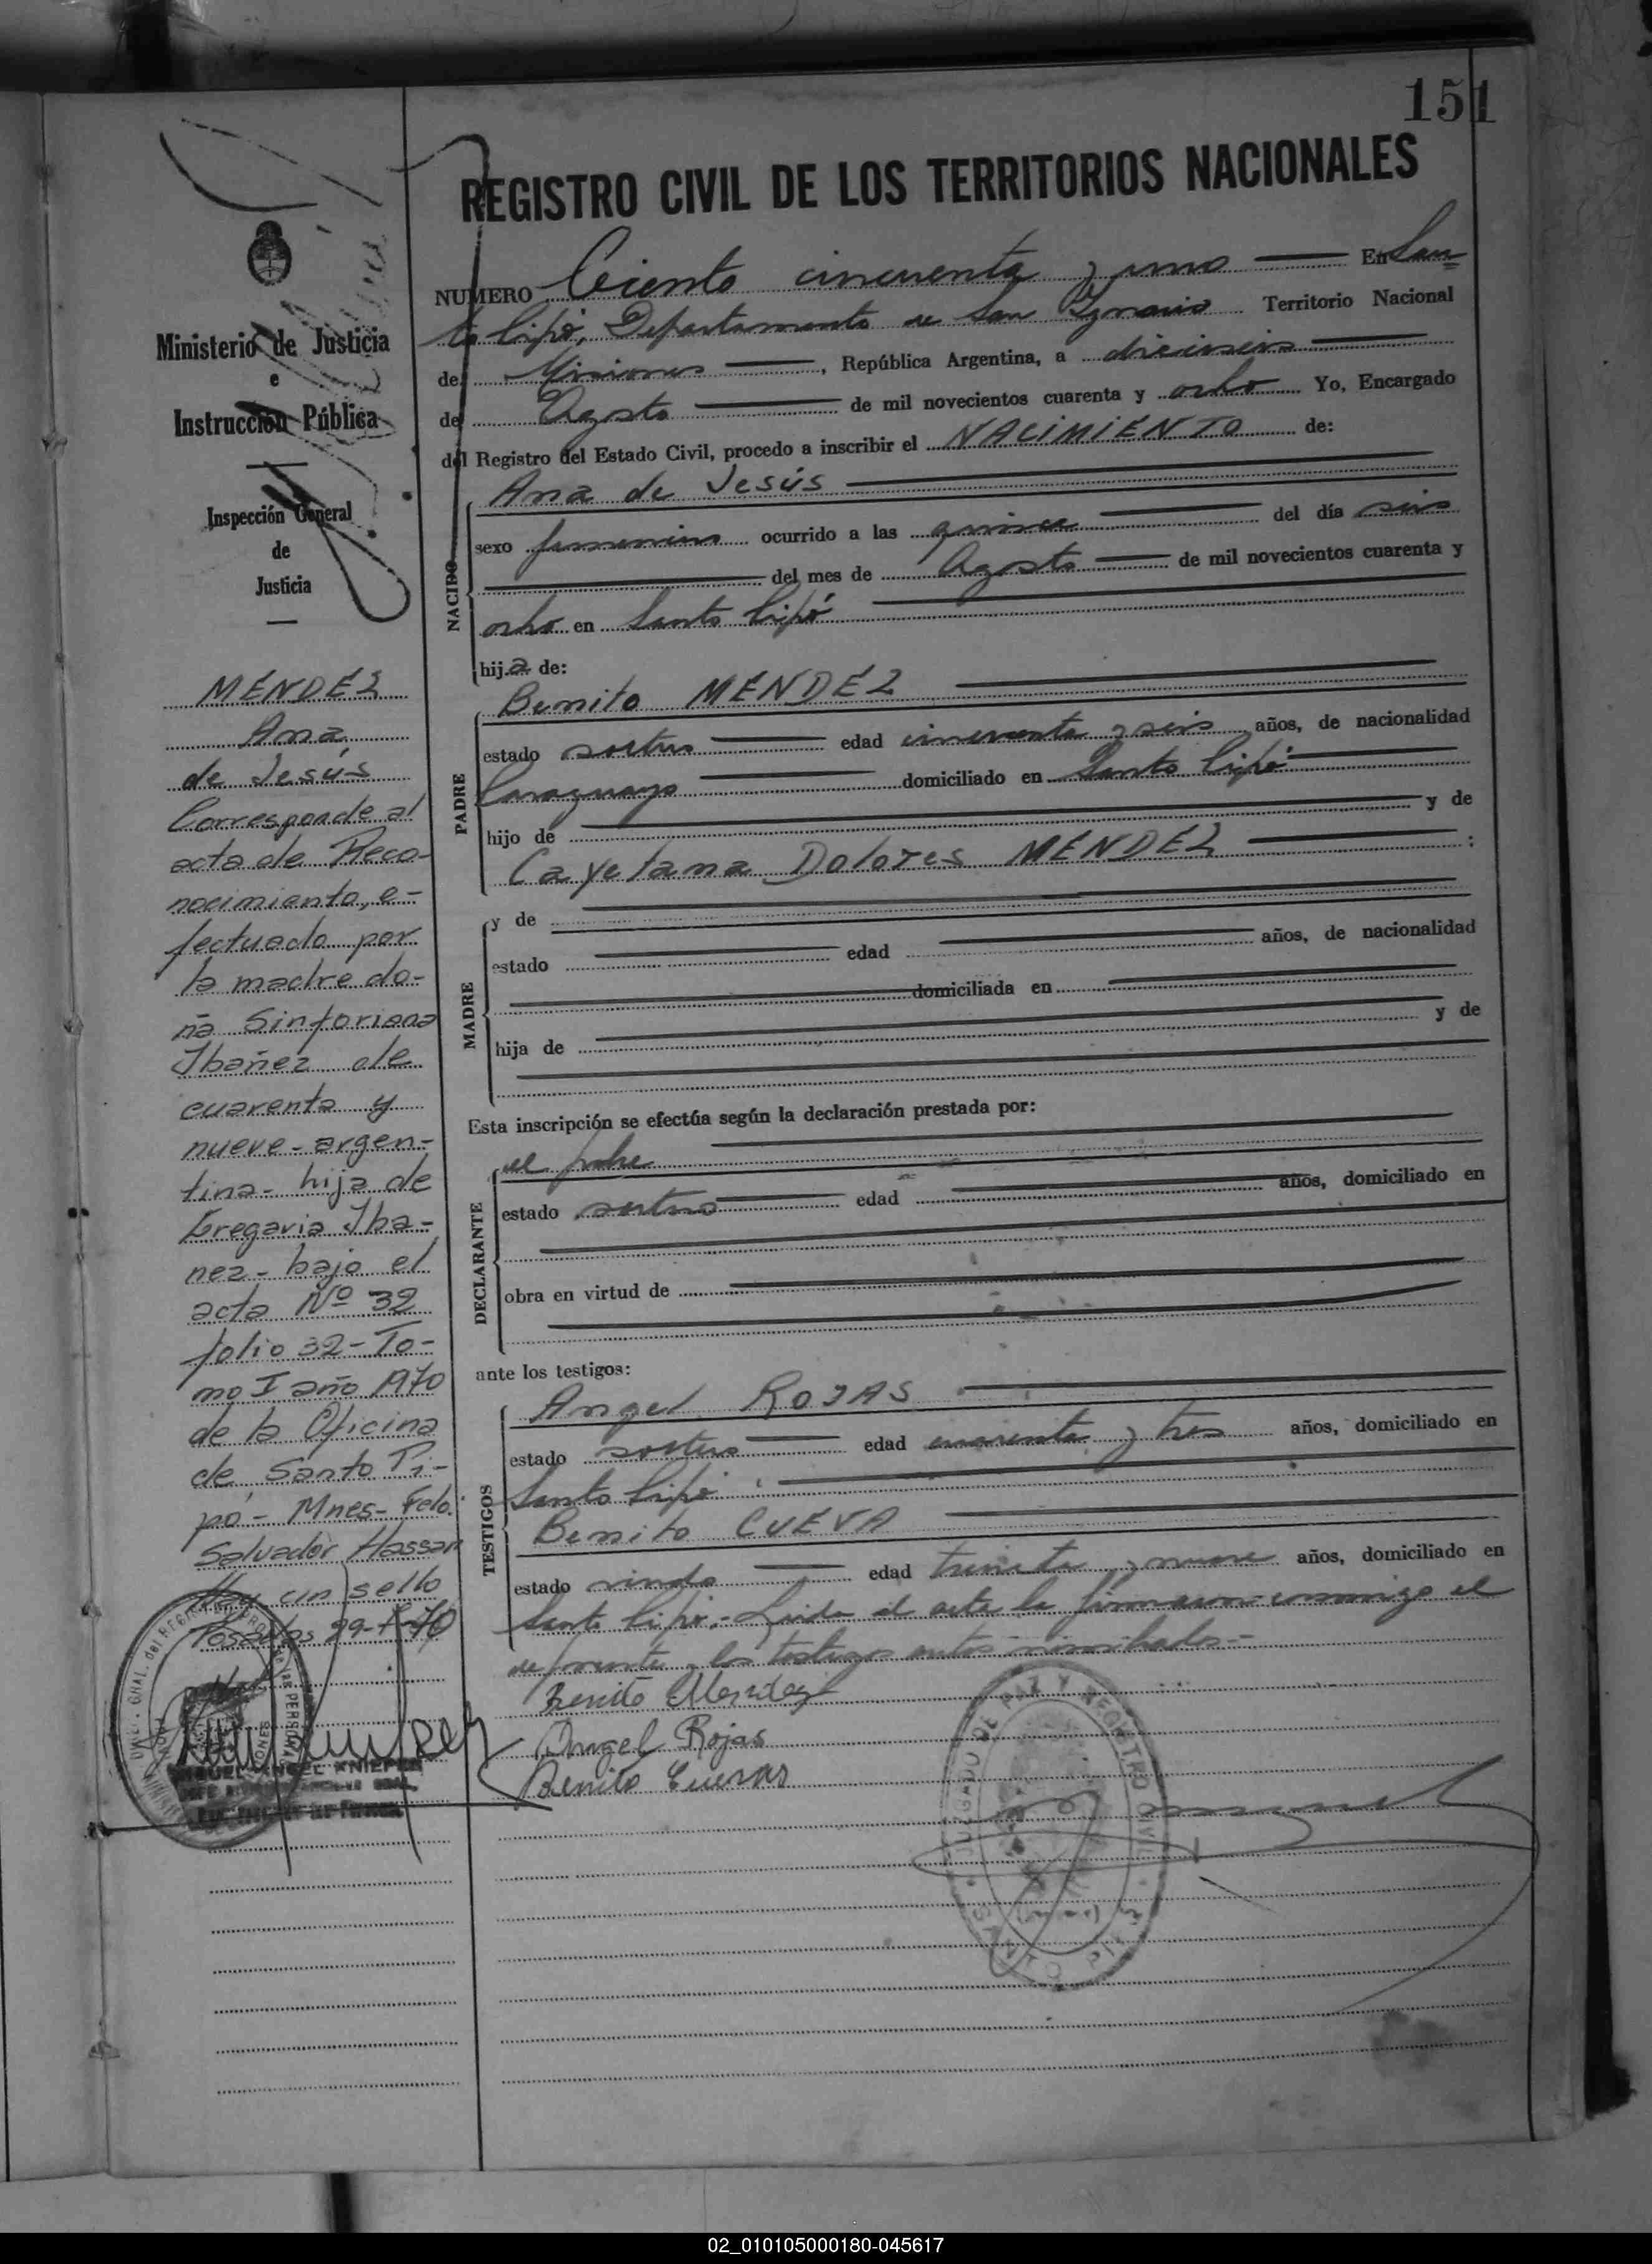 151
REGISTRO CIVIL DE LOS TERRITORIOS NACIONALES
NUMERO Ciento cincuenta y uno En San-
to Pipó, Departamento de San Ignacio Territorio Nacional
de Misiones, República Argentina, a dieciseis
de Agosto de mil novecientos cuarenta y ocho Yo, Encargado
del Registro del Estado Civil, procedo a inscribir el NACIMIENTO de:
NACIDO
Ana de Jesús
sexo femenino ocurrido a las quince del día seis
del mes de Agosto de mil novecientos cuarenta y
ocho en Santo Pipó
hija de:
PADRE
Benito MÉNDEZ
estado soltero edad cincuenta y seis años, de nacionalidad
Paraguayo domiciliado en Santo Pipó
hijo de y de
Cayetana Dolores MÉNDEZ :
MADRE
y de
estado edad años, de nacionalidad
domiciliada en
hija de y de
Esta inscripción se efectúa según la declaración prestada por:
DECLARANTE
el padre
estado soltero edad años, domiciliado en
obra en virtud de
ante los testigos:
TESTIGOS
Angel ROJAS
estado soltero edad cuarenta y tres años, domiciliado en
Santo Pipó
Benito CUEVA
estado viudo edad treinta y nueve años, domiciliado en
Santo Pipó.- Leída el acta la firmaron conmigo el
y los testigos antes
Benito Mendez
Angel Rojas
Benito Cuevas
JUZGADO DE PAZ Y REGISTRO CIVIL
SANTO PIPÓ
Ministerio de Justicia
e
Instrucción Pública
Inspección General
de
Justicia
MÉNDEZ
Ana
de Jesús
Corresponde al
acta de Reco-
nocimiento, e-
fectuado por
la madre do-
ña Sinforiana
Ibañez de
cuarenta y
nueve - argen-
tina - hija de
Gregoria Iba-
ñez - bajo el
acta Nº 32
folio 32 - To-
mo I año 1970
de la Oficina
de Santo Pi-
pó - Mnes - Fdo.
Salvador Hassan
Hay un sello
Posadas
MIGUEL ANGEL KNIEPER
02_010105000180-045617